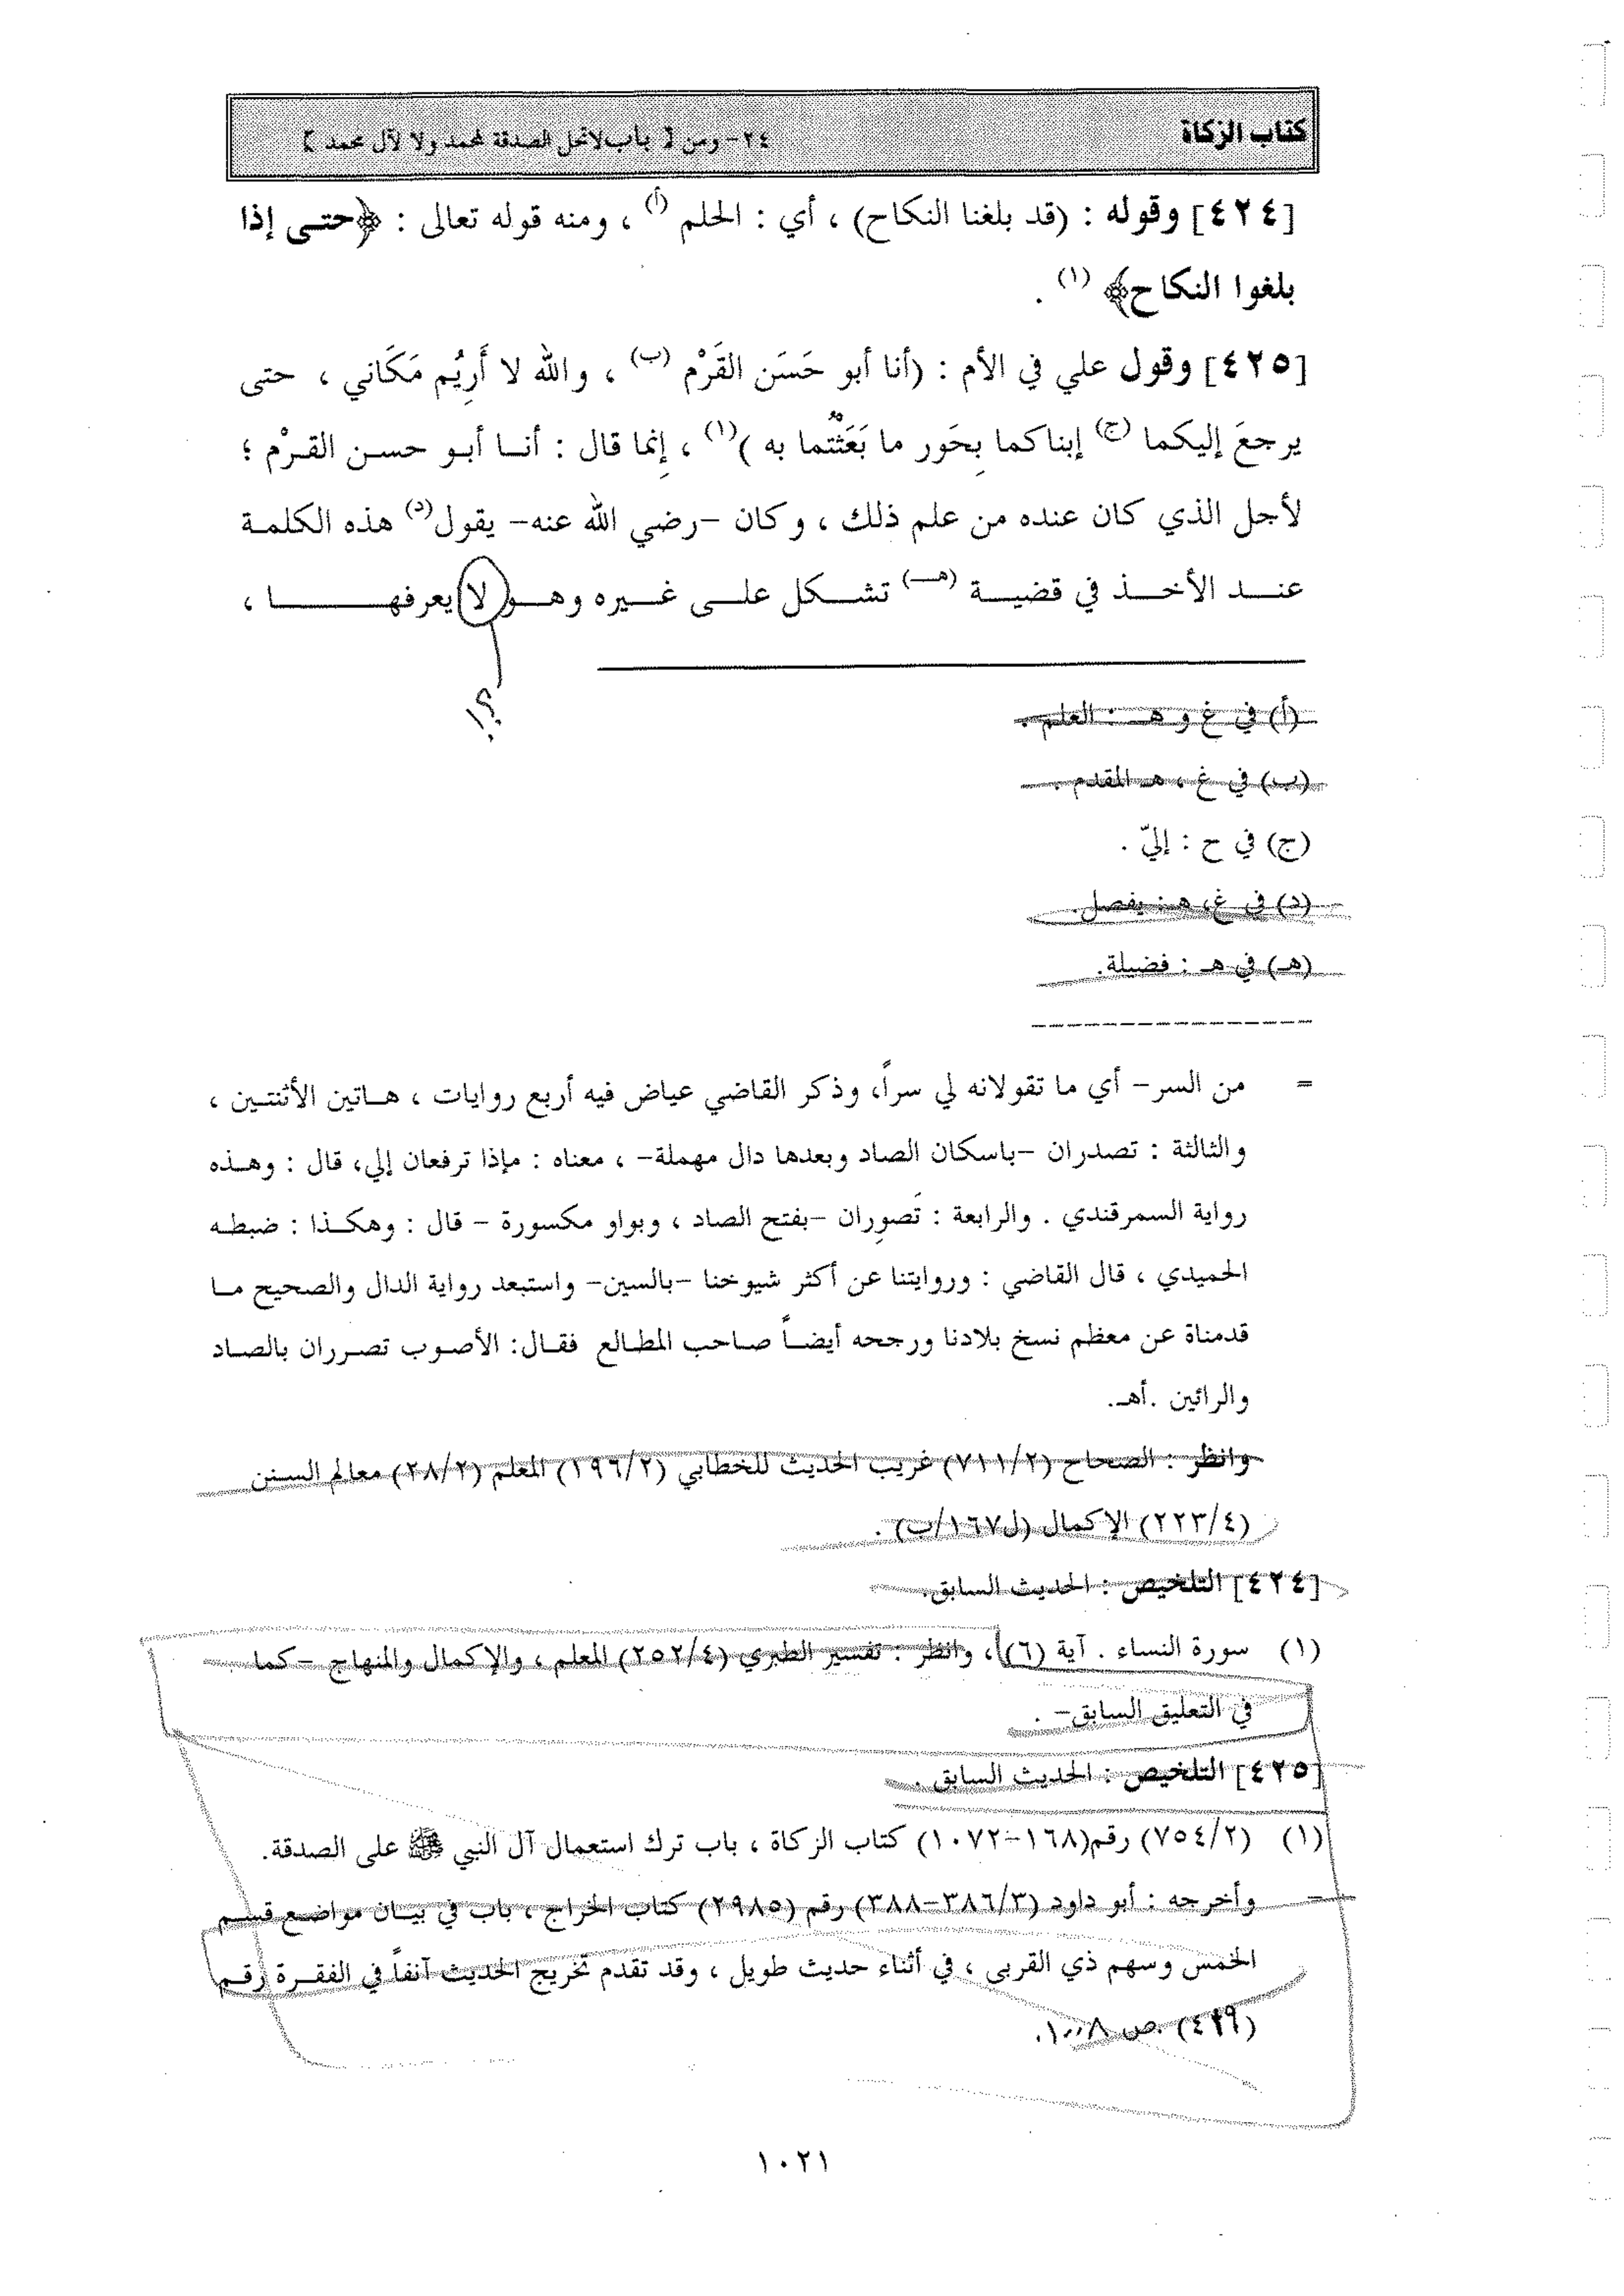 كتاب الزكاة
٢٤- ومن [ باب لا تحل الصدقة لمحمد ولا لآل محمد ]
[٤٢٤] وقوله : (قد بلغنا النكاح) ، أي : الحلم (أ) ، ومنه قوله تعالى : ﴿حتـى إذا
بلغوا النكاح﴾ (١) .
[٤٢٥] وقول علي في الأم : (أنا أبو حَسَن القَرْم (ب) ، والله لا أَرِيُم مَكَاني ، حتى
يرجعَ إليكما (ج) إبناكما بِحَور ما بَعَثْتُما به )(١) ، إِنما قال : أنـا أبـو حسـن القـرْم ؛
لأجل الذي كان عنده من علم ذلك ، وكان -رضي الله عنه- يقول(د) هذه الكلمـة
عنـد الأخـذ في قضيـة (هـ) تشـكل علـى غـيره وهـو لا يعرفهـا ،
؟!
(أ) في غ و هـ : العلم .
(ب) في غ ، هـ المقدم .
(ج) في ح : إليّ .
(د) في غ، هـ : يفصل.
(هـ) في هـ : فضيلة.
= من السر- أي ما تقولانه لي سراً، وذكر القاضي عياض فيه أربع روايات ، هـاتين الأثنتـين ،
والثالثة : تصدران -باسكان الصاد وبعدها دال مهملة- ، معناه : مإذا ترفعان إلي، قال : وهـذه
رواية السمرقندي . والرابعة : تَصوِران -بفتح الصاد ، وبواو مكسورة - قال : وهكـذا : ضبطـه
الحميدي ، قال القاضي : وروايتنا عن أكثر شيوخنا -بالسين- واستبعد رواية الدال والصحيح مـا
قدمناة عن معظم نسخ بلادنا ورجحه أيضـاً صـاحب المطـالع فقـال: الأصـوب تصـرران بالصـاد
والرائين .أهـ.
وانظر : الصحاح (٧١١/٢) غريب الحديث للخطابي (١٩٦/٢) المعلم (٢٨/٢) معالم السنن
(٢٢٣/٤) الإكمال (ل١٦٧/ب) .
[٤٢٤] التلخيص : الحديث السابق.
(١) سورة النساء . آية (٦) ، وانظر : تفسير الطبري (٢٥٢/٤) المعلم ، والإكمال والمنهاج -كما
في التعليق السابق- .
[٤٢٥] التلخيص : الحديث السابق .
(١) (٧٥٤/٢) رقم(١٦٨-١٠٧٢) كتاب الزكاة ، باب ترك استعمال آل النبي ﷺ على الصدقة.
= وأخرجه : أبو داود (٣٨٦/٣-٣٨٨) رقم (٢٩٨٥) كتاب الخراج ، باب في بيـان مواضـع قسـم
الخمس وسهم ذي القربى ، في أثناء حديث طويل ، وقد تقدم تخريج الحديث آنفاً في الفقـرة رقـم
ص ١٠٠٨.
١٠٢١